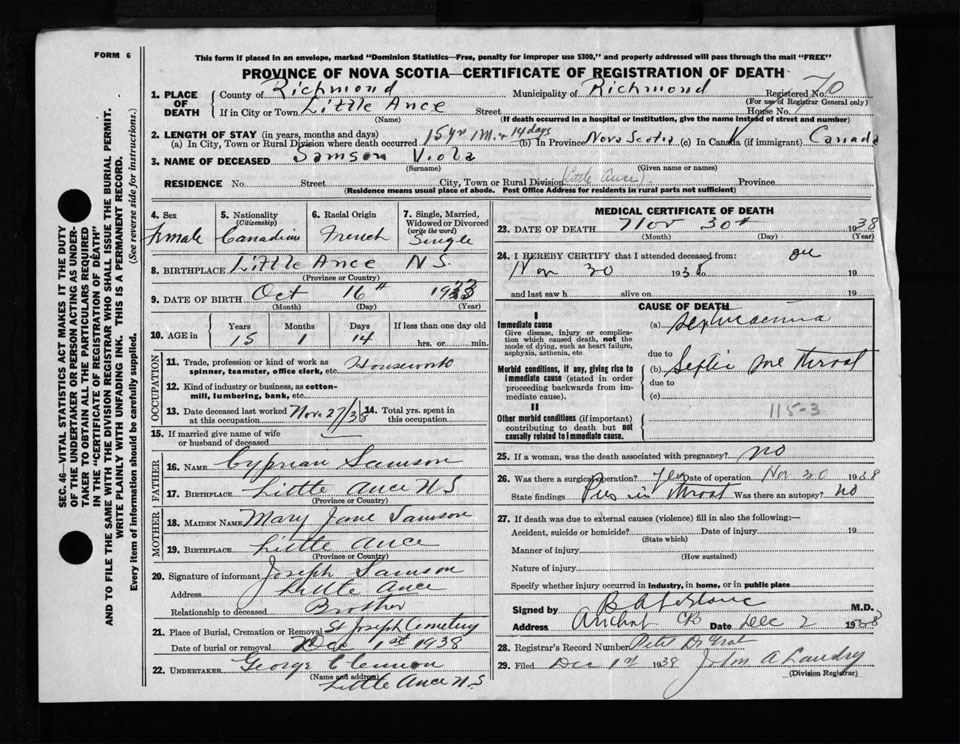 FORM 6
This form if placed in an envelope, marked "Dominion Statistics—Free, penalty for improper use $300," and properly addressed will pass through the mail "FREE"
PROVINCE OF NOVA SCOTIA—CERTIFICATE OF REGISTRATION OF DEATH
1. PLACE OF DEATH County of Richmond Municipality of Richmond Registered No. 70
(For use of Registrar General only)
If in City or Town Little Ance Street House No.
(Name) (If death occurred in a hospital or institution, give the name instead of street and number)
2. LENGTH OF STAY (in years, months and days)
(a) In City, Town or Rural Division where death occurred 15 yr 1 M. + 14 days (b) In Province Nova Scotia (c) In Canada (if immigrant) Canada
3. NAME OF DECEASED Samson Viola
(Surname) (Given name or names)
RESIDENCE No. Street City, Town or Rural Division (Little Ance). Province
(Residence means usual place of abode. Post Office Address for residents in rural parts not sufficient)
SEC. 46—VITAL STATISTICS ACT MAKES IT THE DUTY
OF THE UNDERTAKER OR PERSON ACTING AS UNDER-
TAKER TO OBTAIN ALL THE PARTICULARS REQUIRED
IN THE "CERTIFICATE OF REGISTRATION OF DEATH"
AND TO FILE THE SAME WITH THE DIVISION REGISTRAR WHO SHALL ISSUE THE BURIAL PERMIT.
WRITE PLAINLY WITH UNFADING INK. THIS IS A PERMANENT RECORD.
Every item of information should be carefully supplied. (See reverse side for instructions.)
4. Sex female
5. Nationality (Citizenship) Canadian
6. Racial Origin French
7. Single, Married, Widowed or Divorced (write the word) Single
8. BIRTHPLACE Little Ance N S.
(Province or Country)
9. DATE OF BIRTH Oct 16th 1923
(Month) (Day) (Year)
10. AGE in Years 15 Months 1 Days 14 If less than one day old hrs. or min.
OCCUPATION
11. Trade, profession or kind of work as
spinner, teamster, office clerk, etc. Housework
12. Kind of industry or business, as cotton-
mill, lumbering, bank, etc.
13. Date deceased last worked at this occupation Nov 27/38 14. Total yrs. spent in this occupation
15. If married give name of wife
or husband of deceased
FATHER
16. NAME Cyprian Samson
17. BIRTHPLACE Little Ance N S
(Province or Country)
MOTHER
18. MAIDEN NAME Mary Jane Samson
19. BIRTHPLACE Little Ance
(Province or Country)
20. Signature of informant Joseph Samson
Address Little Ance
Relationship to deceased Brother
21. Place of Burial, Cremation or Removal St Joseph Cemetery
Date of burial or removal Dec 1st 1938
22. UNDERTAKER George Clennon
(Name and address)
Little Ance N S
MEDICAL CERTIFICATE OF DEATH
23. DATE OF DEATH Nov 30th 1938
(Month) (Day) (Year)
24. I HEREBY CERTIFY that I attended deceased from: on
Nov 30 1938 19
and last saw h alive on 19
CAUSE OF DEATH
I
Immediate cause
Give disease, injury or complica-
tion which caused death, not the
mode of dying, such as heart failure,
asphyxia, asthenia, etc
(a) Septicaemia
due to
Morbid conditions, if any, giving rise to
immediate cause (stated in order
proceeding backwards from im-
mediate cause).
(b) Septic sore throat
due to
(c)
II
Other morbid conditions (if important)
contributing to death but not
causally related to immediate cause.
115-3
25. If a woman, was the death associated with pregnancy? no
26. Was there a surgical operation? Yes Date of operation Nov 30 1938
State findings Pus in throat Was there an autopsy? no
27. If death was due to external causes (violence) fill in also the following:—
Accident, suicide or homicide? Date of injury 19
(State which)
Manner of injury
(How sustained)
Nature of injury
Specify whether injury occurred in industry, in home, or in public place
Signed by B A LeBlanc M.D.
Address Arichat CB Date Dec 2 1938
28. Registrar's Record Number Petit De Grat
29. Filed Dec 1st 1938 John A Landry
(Division Registrar)